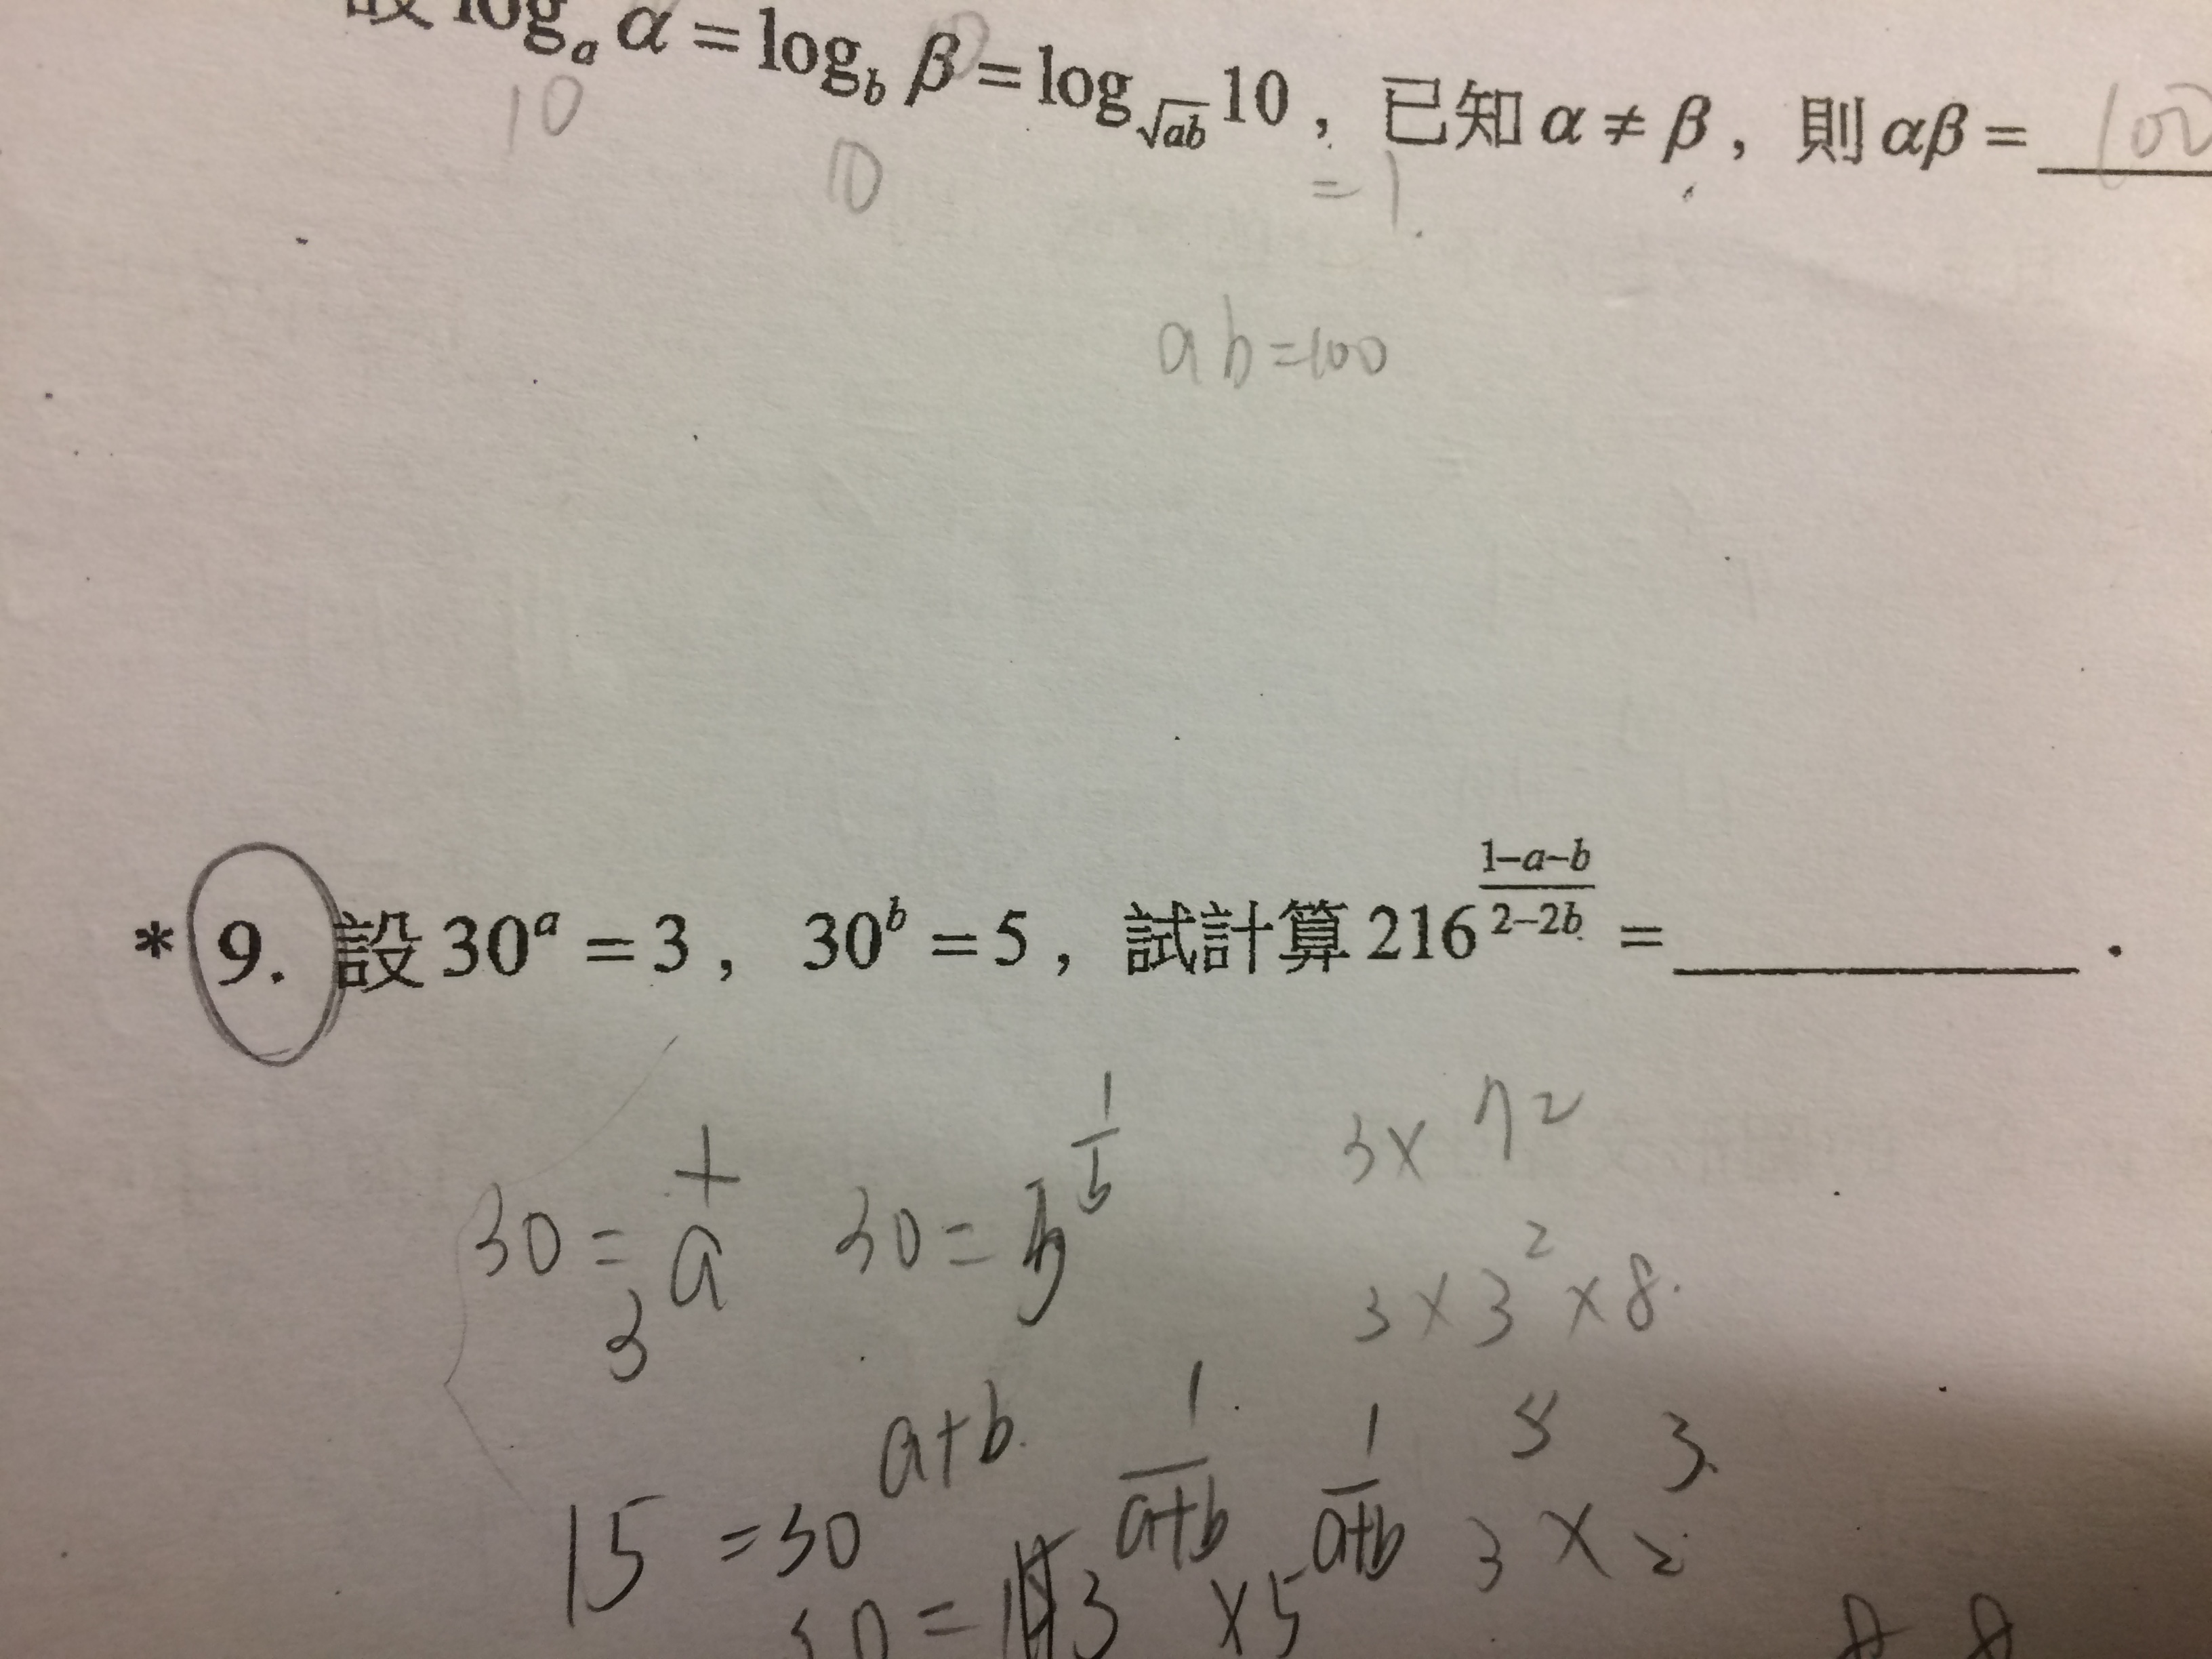 設 log_a α = log_b β = log_{\sqrt{ab}} 10 , 已知 α ≠ β , 則 αβ = 100
10
10
= 1
ab=100
* 9. 設 30^a = 3 , 30^b = 5 , 試計算 216^{\frac{1-a-b}{2-2b}} = ________ .
30 = 3^{\frac{1}{a}} 30 = 5^{\frac{1}{b}} 3× 72
3 × 3^2 × 8
15 = 30^{a+b} 3 × 2^3
30 = 3^{\frac{1}{a+b}} ×5^{\frac{1}{a+b}}